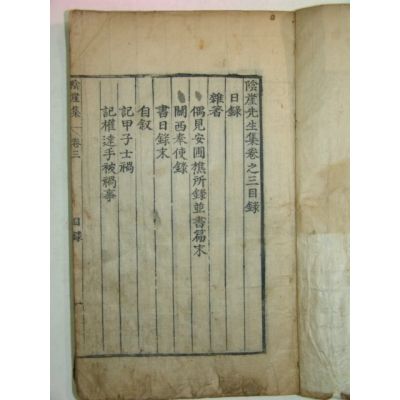 陰崖先生集卷之三目錄
日錄
雜著
偶見安圃樵所錄並書篇末
關西奉使錄
書日錄末
自叙
記甲子士禍
記權達手被禍事
陰崖集 卷三 目錄 一